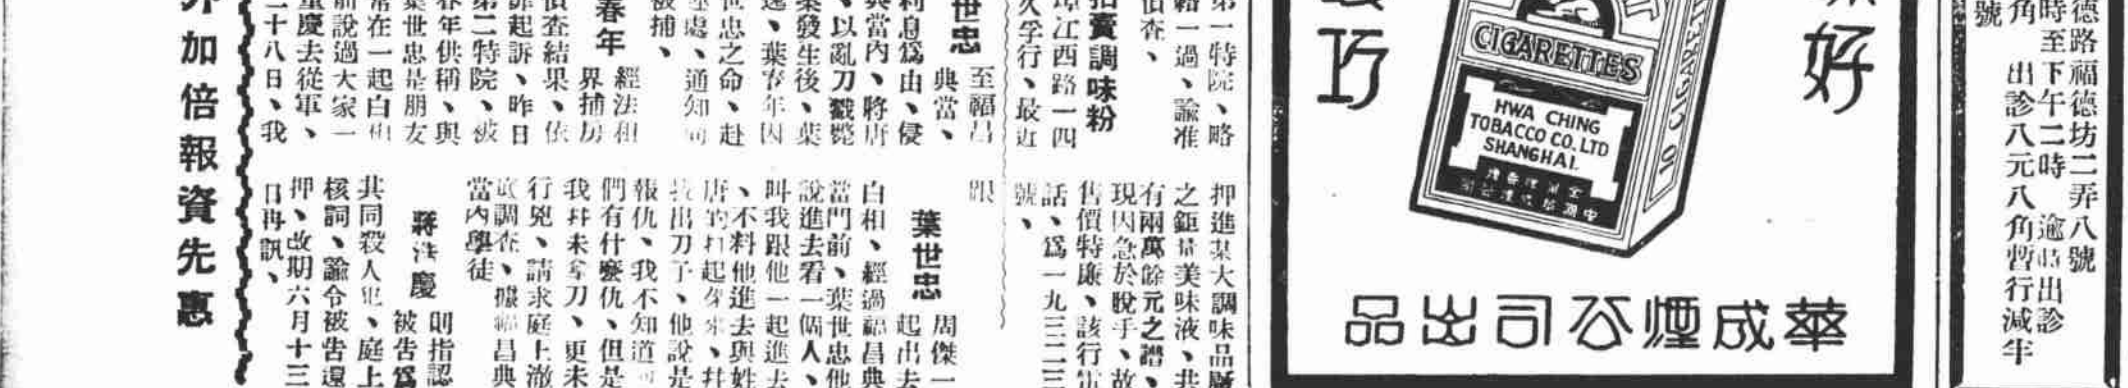 德路福德坊二弄八號
時至下午二時 逾時出診
角 出診八元八角暫行減半
號
好
巧
CIGARETTES
HWA CHING
TOBACCO CO. LTD
SHANGHAI.
10 CIGA
華成煙公司出品
第一特院、略
一過、諭准
偵查、
拍賣調味粉
江西路一四
久孚行、最近
押進某大調味品廠
之鉅量美味液、共
有兩萬餘元之譜、
現因急於脫手、故
售價特廉、該行電
話、爲一九三二三
號、
世忠
至福昌
典當、
利息爲由、侵
典當內、將唐
、以亂刀戳斃
案發生後、葉
逸、葉春年因
世忠之命、赴
處、通知
被捕、
春年
經法租
界捕房
偵查結果、依
起訴、昨日
第二特院、被
春年供稱、與
葉世忠是朋友
常在一起白相
前說過大家一
重慶去從軍、
二十八日、我
跟
葉世忠
周傑一
起出去
白相、經過福昌典
當門前、葉世忠他
說進去看一個人、
叫我跟他一起進去
、不料他進去與姓
唐的打起架來、幷
拔出刀子、他說是
報仇、我不知道
們有什麼仇、但是
我幷未拿刀、更未
行兇、請求庭上澈
底調查、據福昌典
當內學徒
蔣洪慶
則指認
被告爲
其同殺人犯、庭上
核詞、諭令被告還
押、改期六月十三
日再訊、
外加倍報資先惠